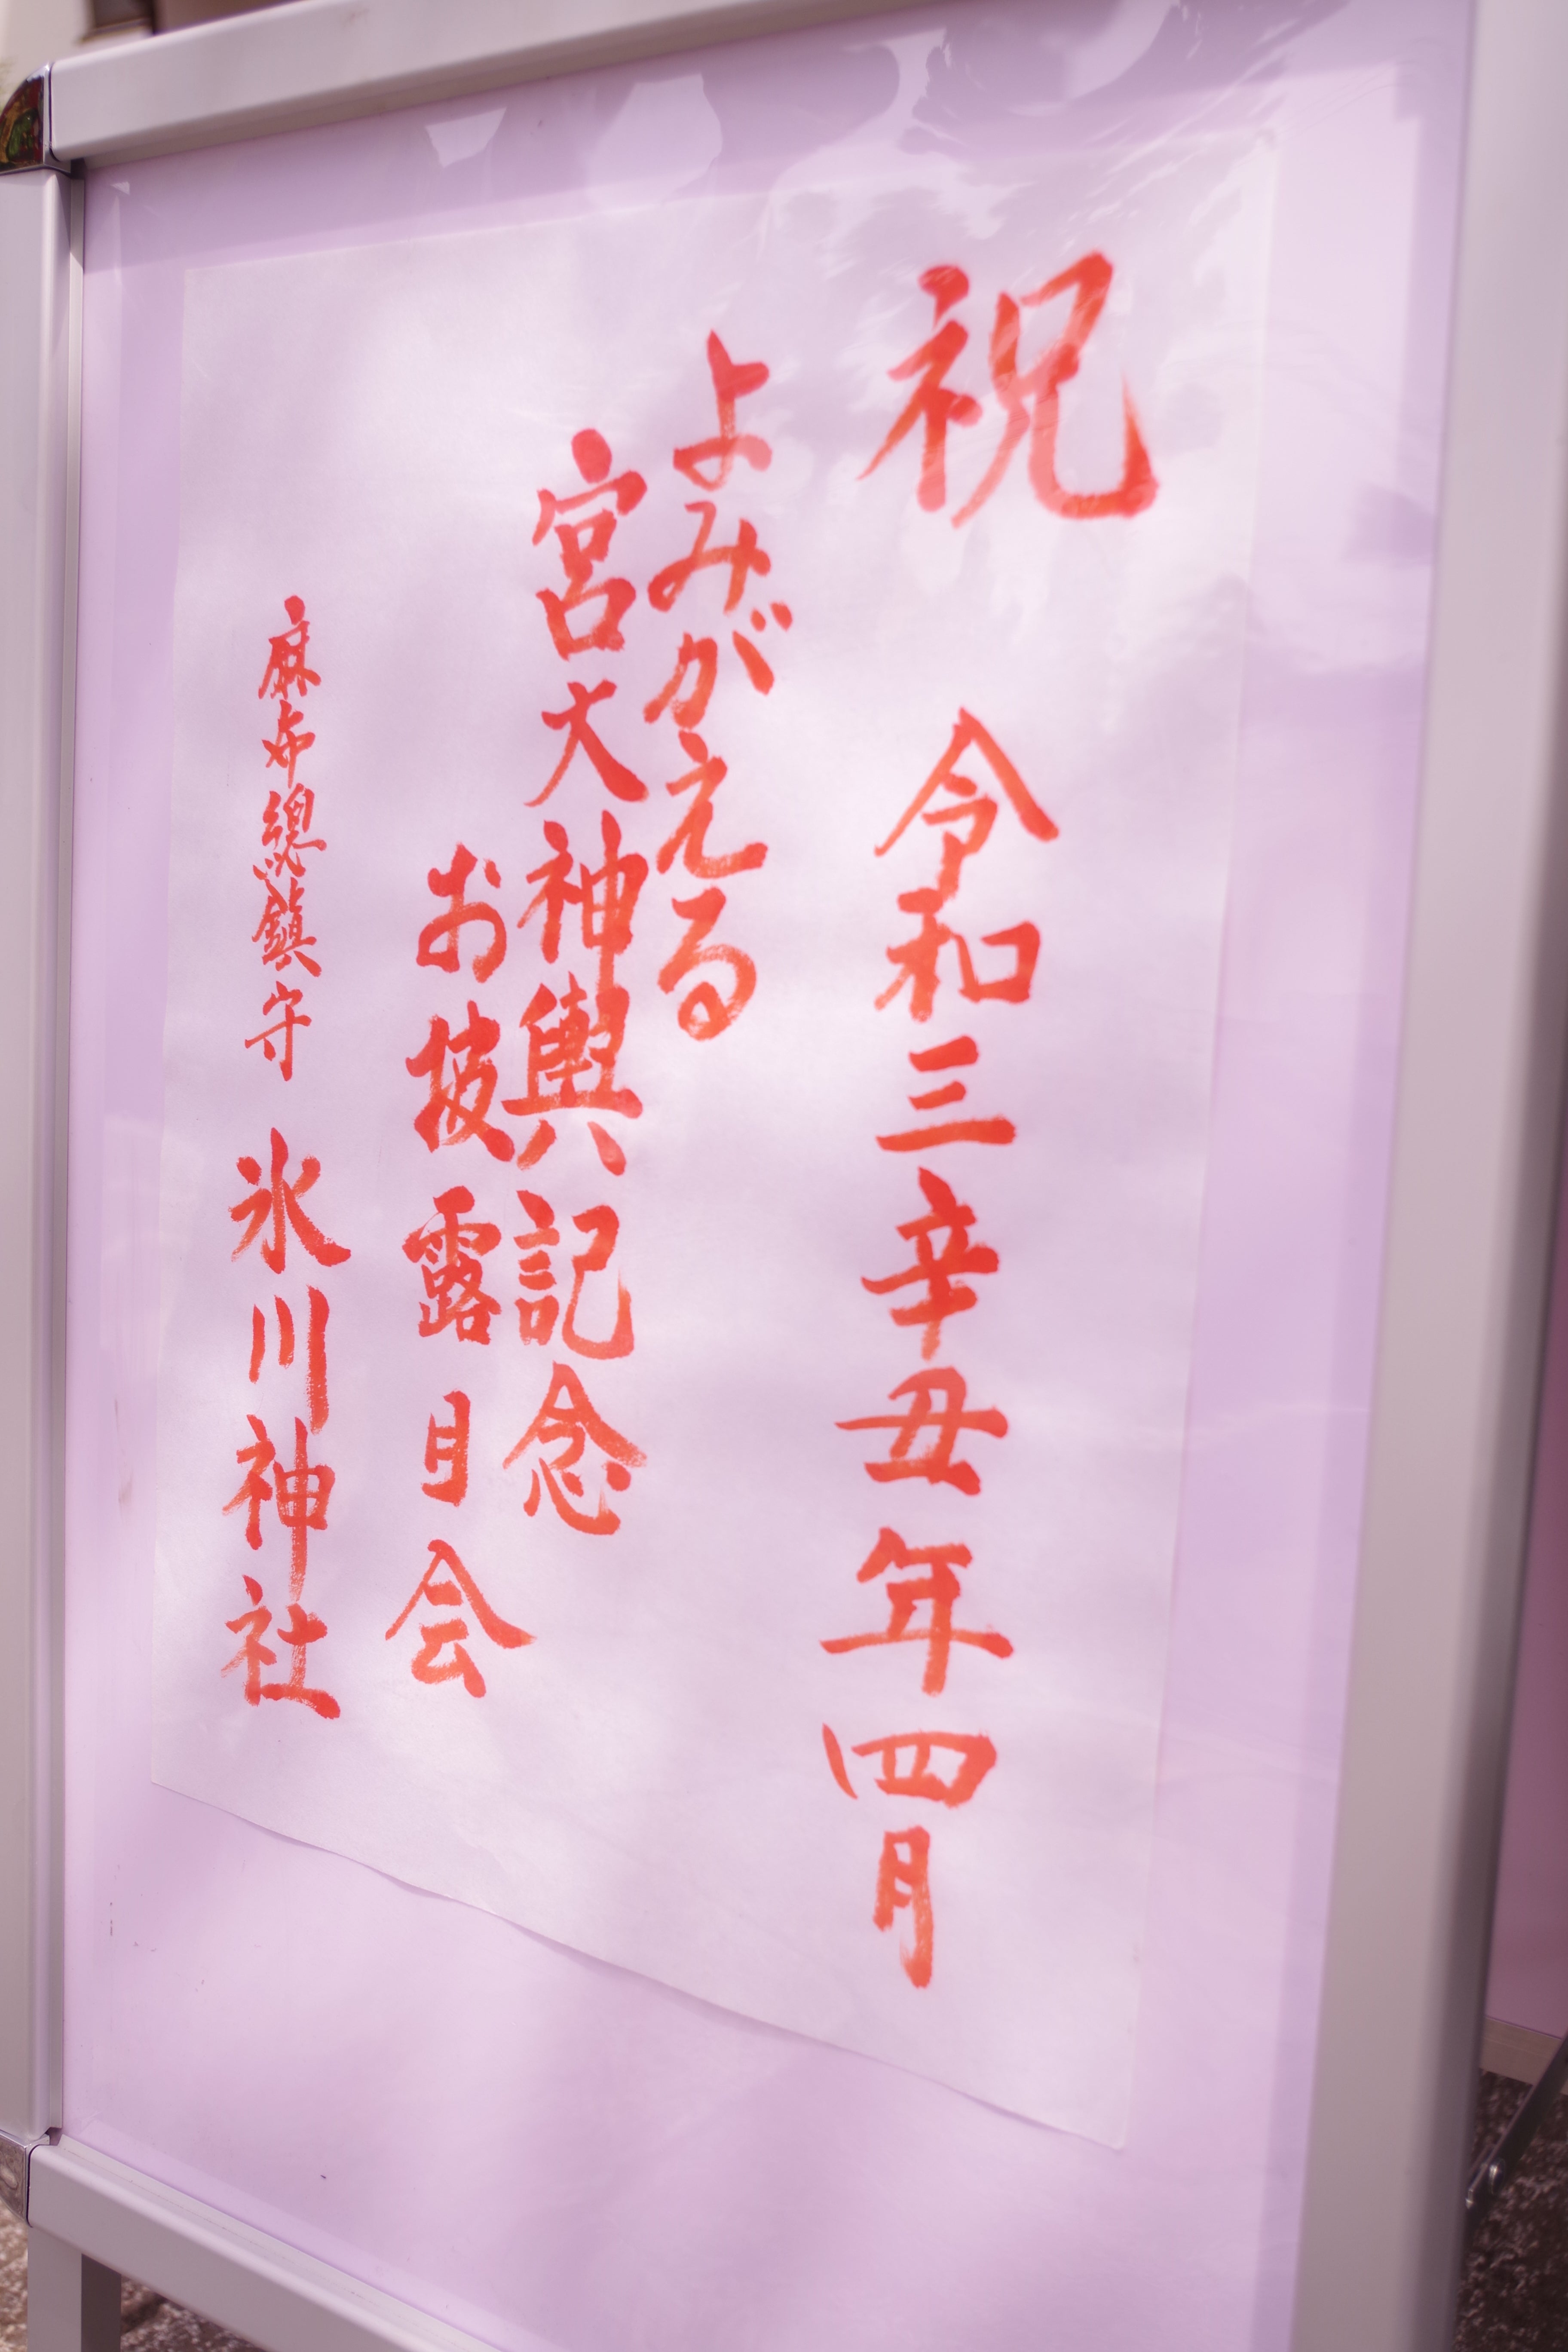 祝
令和三辛丑年四月
よみがえる
宮大神輿記念
お披露目会
麻布總鎮守 氷川神社